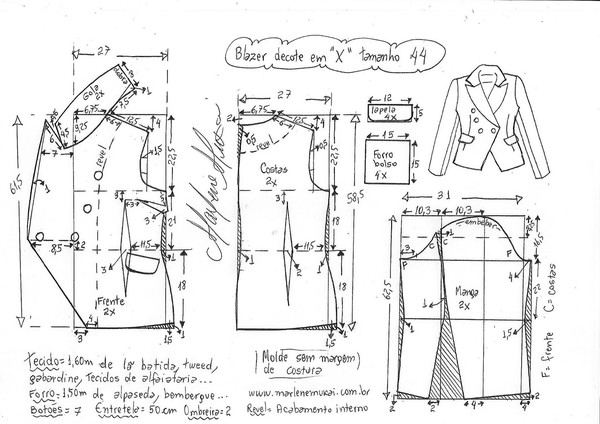 Blazer decote em "X" tamanho 44
27
Gola 2x
3
7,5
1
6,75
12,5
4
9,25
4,5
6
7
revel
22,5
61,5
3
3
21
8,5
2
11,5
1
x
18
Frente
2x
3
4
1,5
1
27
2
6,75
12,5
4
0,5
revel
0,5
22,5
Costas
2x
58,5
18
11,5
1
2
18
1,5
1
12
lapela
4x
5
15
Forro
bolso
4x
15
31
10,3
10,3
embeber
1
C
C
3
F
F
4
62,5
22
Manga
2x
1
1
1,5
2
2
4
4
F = frente C = costas
Tecido = 1,60m de lã batida, tweed,
gabardine, Tecidos de alfaiataria...
Forro = 1,50m de alpaseda, bembergue...
Botões = 7 Entretela = 50 cm Ombreira = 2
Molde sem margem
de costura
www.marlenemukai.com.br
Revel = Acabamento interno